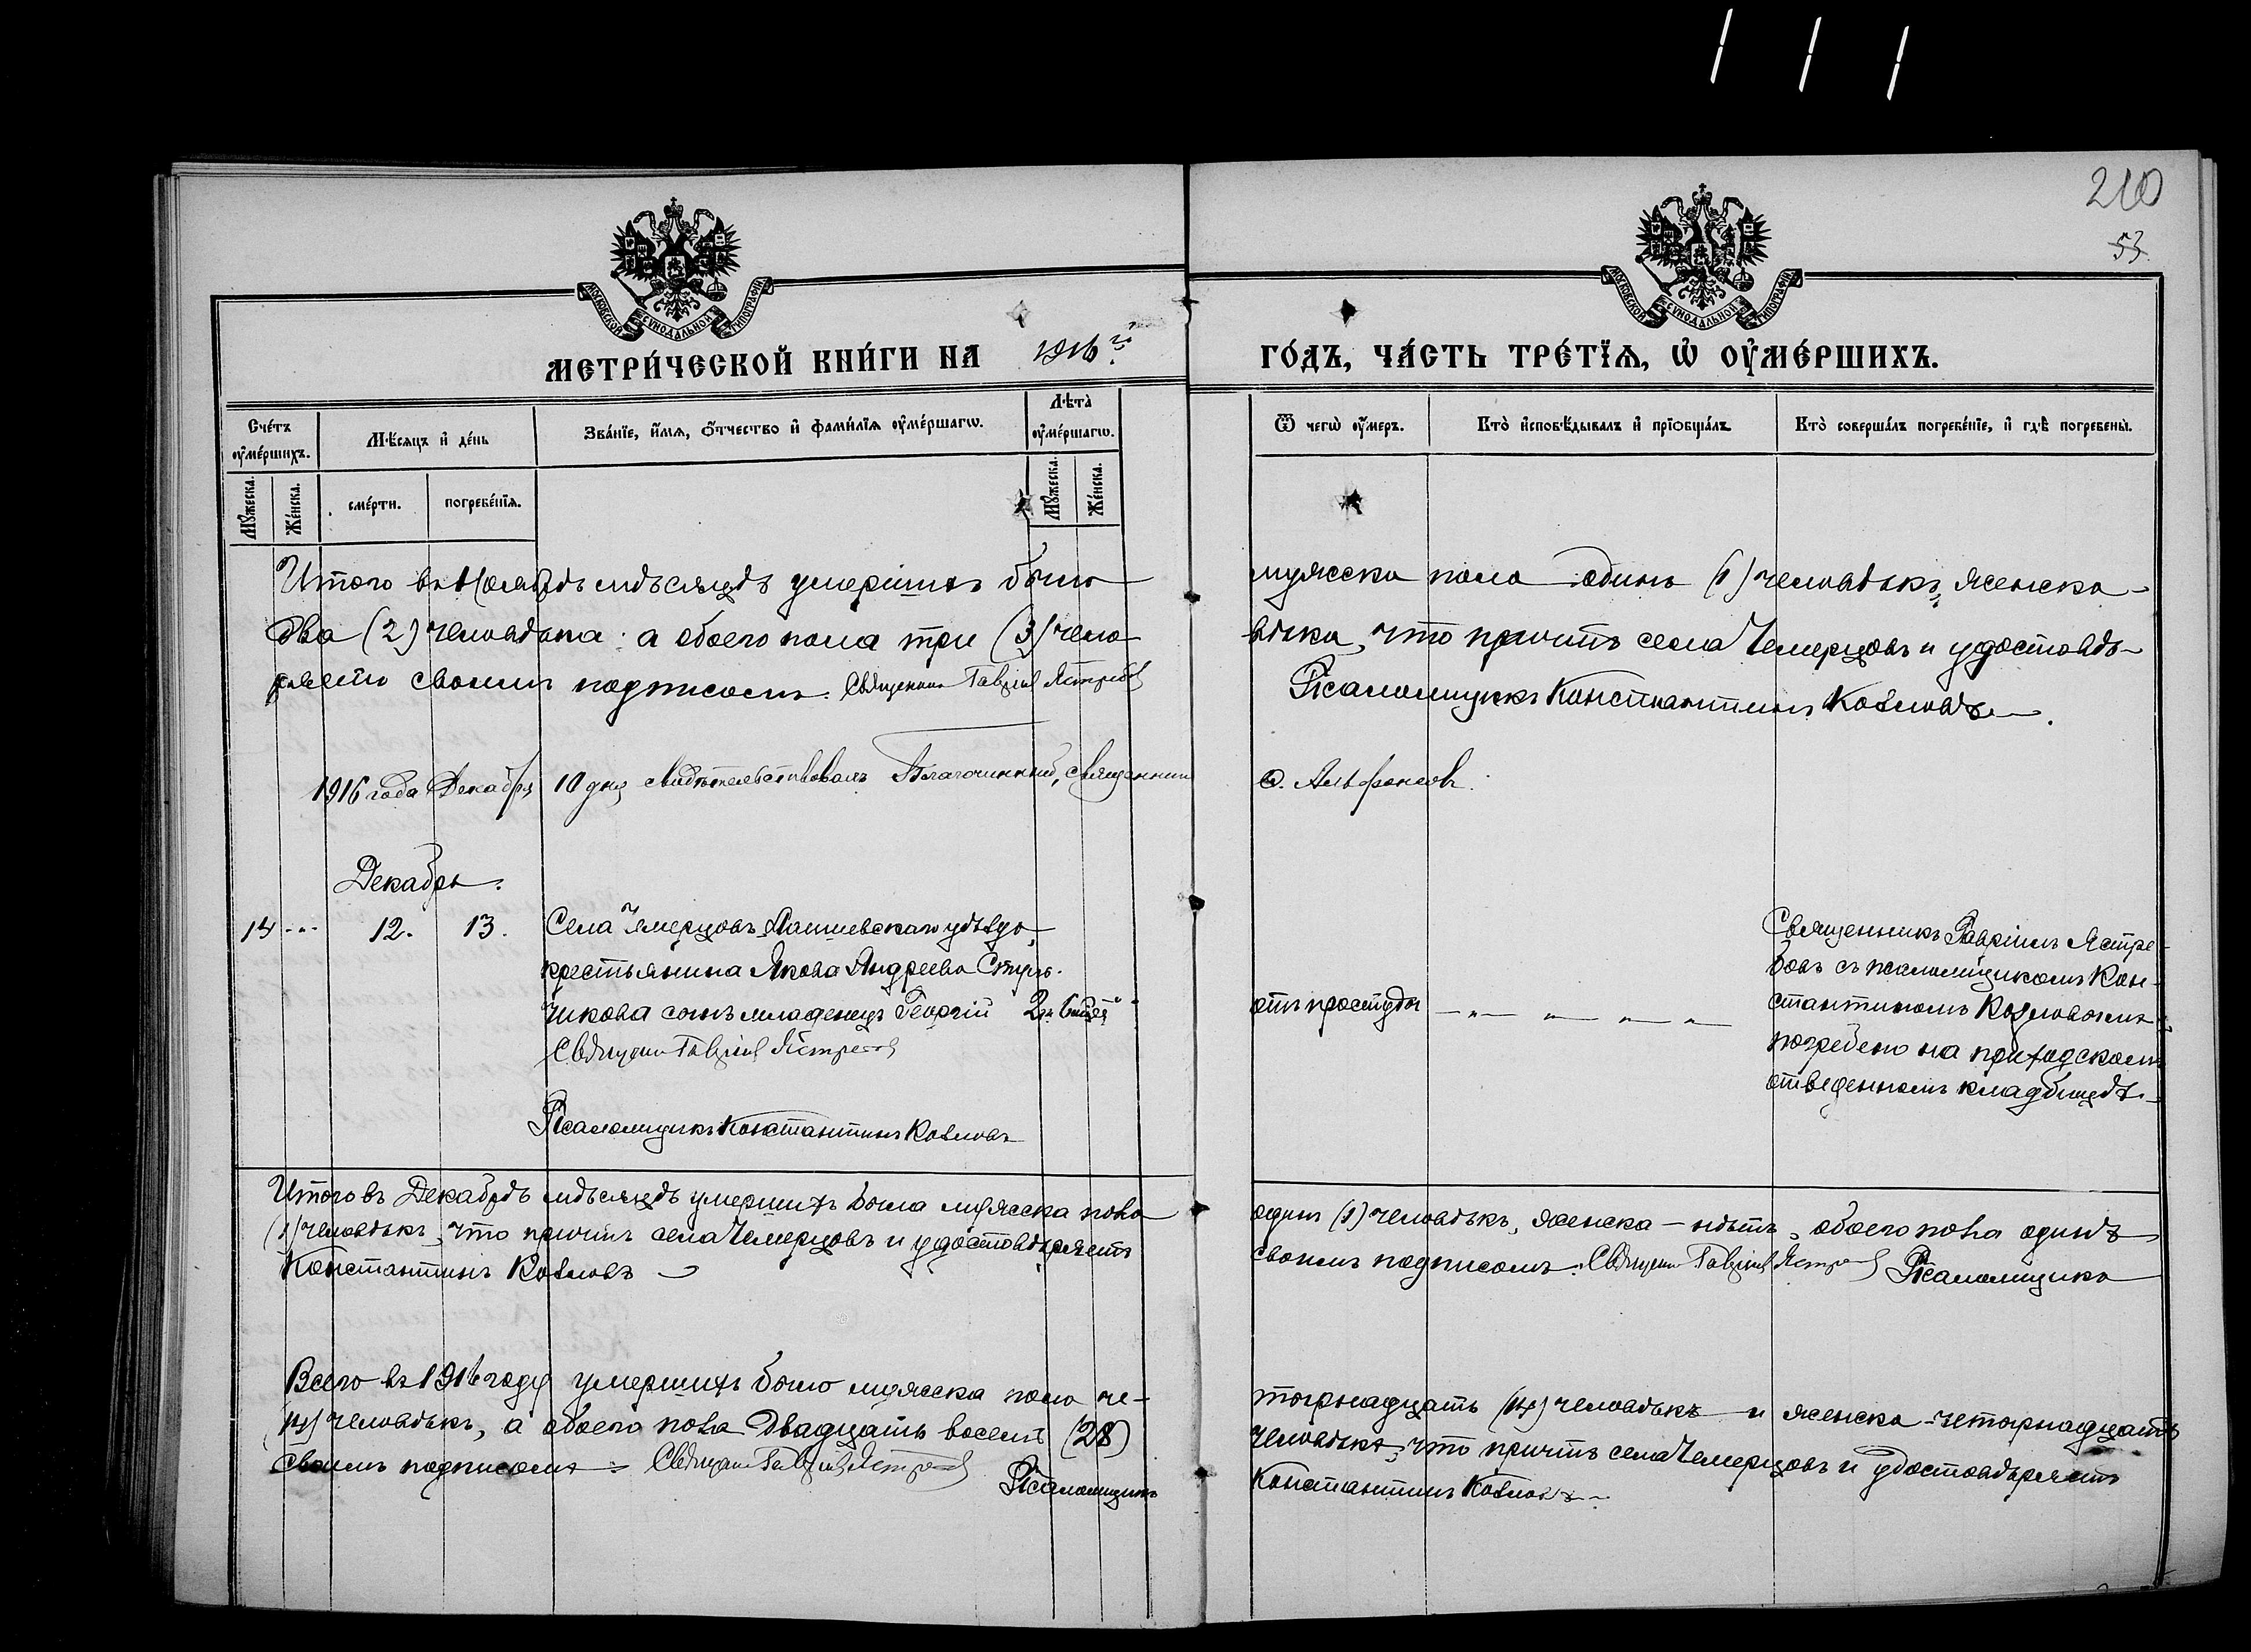 210
53
МОСКОВСКОЙ СѴНОДАЛЬНОЙ ТИПОГРАФІИ
МОСКОВСКОЙ СѴНОДАЛЬНОЙ ТИПОГРАФІИ
МЕТРИ́ЧЕСКОЙ КНИ́ГИ НА 1916й
ГО́ДЪ, ЧА́СТЬ ТРЕ́ТІѦ, Ѡ҆ ОУ҆МЕ́РШИХЪ.
Сче́тъ оу҆ме́ршихъ.
Мѣ́сяцъ и҆ де́нь
Зва́нїе, и҆́мѧ, ѻ҆́тчество и҆ фами́лїѧ оу҆ме́ршагѡ.
Лѣ́та оу҆ме́ршагѡ.
Ѿ чегѡ̀ оу҆́меръ.
Кто̀ и҆сповѣ́дывалъ и҆ прїобща́лъ.
Кто̀ соверша́лъ погребе́нїе, и҆ гдѣ̀ погребены̀.
Мꙋ́жеска.
Же́нска.
сме́рти.
погребе́нїѧ.
Мꙋ́жеска.
Же́нска.
Итого въ Ноябрѣ мѣсяцѣ умершихъ было
мужска пола одинъ (1) человѣкъ, женска
два (2) человѣка: а обоего пола три (3) чело
вѣка, что причтъ села Чемерцовъ и удостовѣ-
ряетъ своимъ подписомъ. Священникъ Гавріилъ Ястребовъ
Псаломщикъ Константинъ Козловъ.
1916 года Декабря 10 дня свидѣтельствовалъ Благочинный, священникъ
Ѳ. Альфонсовъ.
Декабрь.
14 -"- 12. 13. Села Чемерцовъ Лаишевскаго уѣзда,
крестьянина Якова Андреева
чикова сынъ младенецъ Георгій 2
Священникъ Гавріилъ Ястребовъ
Псаломщикъ Константинъ Козловъ
отъ простуды — " — " — " — " —
Священникъ Гавріилъ Ястре-
бовъ съ псаломщикомъ Кон-
стантиномъ Козловымъ
погребено на приходскомъ
отведенномъ кладбищѣ.
Итого въ Декабрѣ мѣсяцѣ умершихъ было мужска пола
одинъ (1) человѣкъ, женска — нѣтъ, обоего пола одинъ
(1) человѣкъ, что причтъ села Чемерцовъ и удостовѣряетъ
своимъ подписомъ: Священникъ Гавріилъ Ястребовъ Псаломщикъ
Константинъ Козловъ
Всего въ 1916 году умершихъ было мужска пола че-
тырнадцать (14) человѣкъ и женска четырнадцать
(14) человѣкъ, а обоего пола двадцать восемь (28)
человѣкъ, что причтъ села Чемерцовъ и удостовѣряетъ
своимъ подписомъ: Священникъ Гавріилъ Ястребовъ Псаломщикъ
Константинъ Козловъ